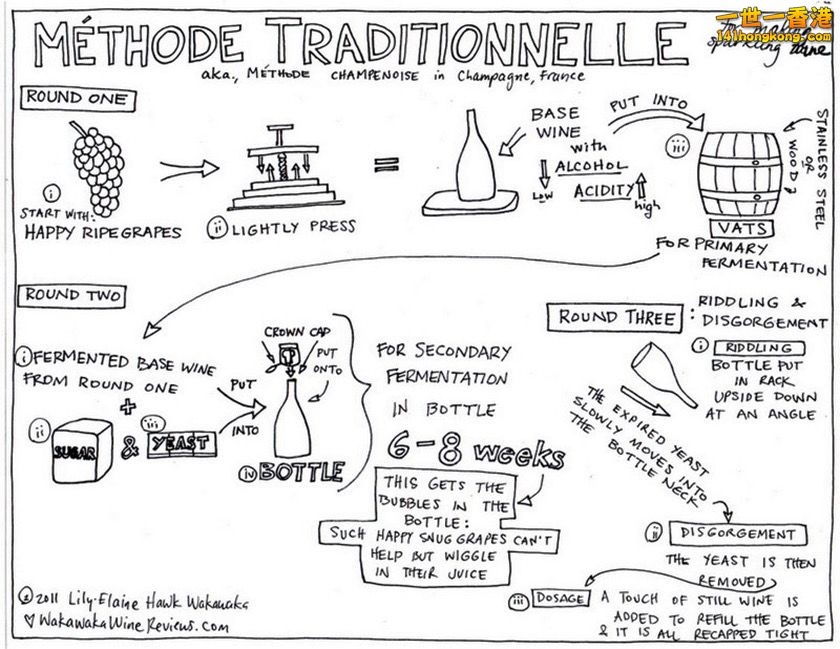 MÉTHODE TRADITIONNELLE
一世一香港
141hongkong.com
sparkling wine
aka., MÉTHODE CHAMPENOISE in Champagne, France
ROUND ONE
i
START WITH:
HAPPY RIPE GRAPES
ii LIGHTLY PRESS
=
BASE
WINE
with
ALCOHOL
low
ACIDITY
high
PUT INTO
iii
STAINLESS STEEL
OR
WOOD
VATS
FOR PRIMARY
FERMENTATION
ROUND TWO
i FERMENTED BASE WINE
FROM ROUND ONE
+
ii SUGAR & iii YEAST
PUT
INTO
CROWN CAP
PUT
ONTO
iv BOTTLE
FOR SECONDARY
FERMENTATION
IN BOTTLE
6-8 weeks
THIS GETS THE
BUBBLES IN THE
BOTTLE:
SUCH HAPPY SNUG GRAPES CAN'T
HELP BUT WIGGLE
IN THEIR JUICE
ROUND THREE: RIDDLING &
DISGORGEMENT
i RIDDLING
BOTTLE PUT
IN RACK
UPSIDE DOWN
AT AN ANGLE
THE EXPIRED YEAST
SLOWLY MOVES INTO
THE BOTTLE NECK
ii DISGORGEMENT
THE YEAST IS THEN
REMOVED
iii DOSAGE A TOUCH OF STILL WINE IS
ADDED TO REFILL THE BOTTLE
& IT IS ALL RECAPPED TIGHT
© 2011 Lily-Elaine Hawk Wakawaka
♡ WakawakaWineReviews.com